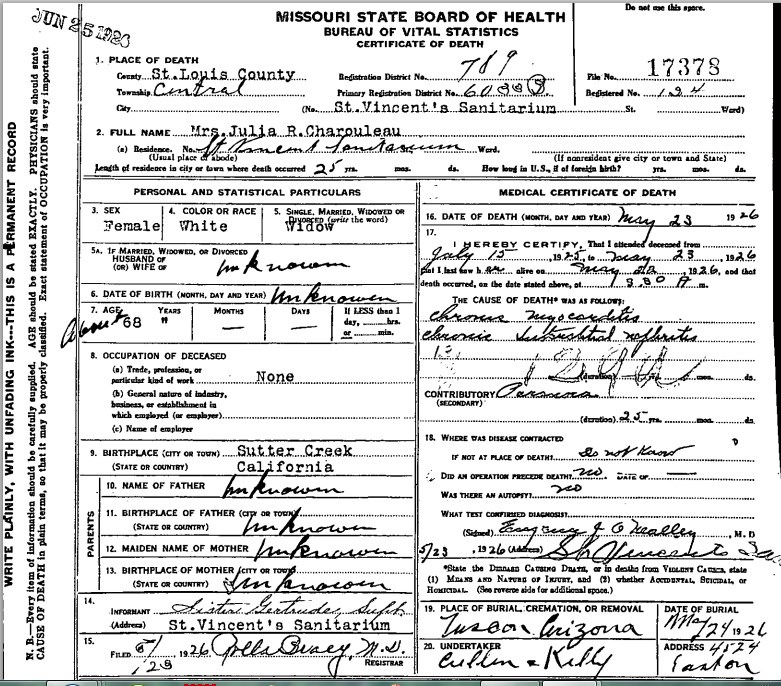 JUN 25 1926
Do not use this space.
MISSOURI STATE BOARD OF HEALTH
BUREAU OF VITAL STATISTICS
CERTIFICATE OF DEATH
1. PLACE OF DEATH
County St.Louis County Registration District No. 789 File No. 17378
Township Central Primary Registration District No. Registered No. 124
City (No. St.Vincent's Sanitarium St. Ward)
2. FULL NAME Mrs.Julia R.Charouleau
(a) Residence. No. St Vincent Sanitarium Ward.
(Usual place of abode) (If nonresident give city or town and State)
Length of residence in city or town where death occurred 25 yrs. mos. ds. How long in U.S., if of foreign birth? yrs. mos. ds.
PERSONAL AND STATISTICAL PARTICULARS
3. SEX Female
4. COLOR OR RACE White
5. SINGLE, MARRIED, WIDOWED OR DIVORCED (write the word) Widow
5A. IF MARRIED, WIDOWED, OR DIVORCED
HUSBAND OF
(OR) WIFE OF Unknown
6. DATE OF BIRTH (MONTH, DAY AND YEAR) Unknown
7. AGE YEARS MONTHS DAYS If LESS than 1
About 68 " — — day, ....hrs.
or ....min.
8. OCCUPATION OF DECEASED
(a) Trade, profession, or
particular kind of work None
(b) General nature of industry,
business, or establishment in
which employed (or employer)
(c) Name of employer
9. BIRTHPLACE (CITY OR TOWN) Sutter Creek
(STATE OR COUNTRY) California
PARENTS
10. NAME OF FATHER Unknown
11. BIRTHPLACE OF FATHER (CITY OR TOWN)
(STATE OR COUNTRY) Unknown
12. MAIDEN NAME OF MOTHER Unknown
13. BIRTHPLACE OF MOTHER (CITY OR TOWN)
(STATE OR COUNTRY) Unknown
14.
INFORMANT Sister Gertrude Supt.
(Address) St.Vincent's Sanitarium
15.
FILED 1926 M.D.
REGISTRAR
MEDICAL CERTIFICATE OF DEATH
16. DATE OF DEATH (MONTH, DAY AND YEAR) May 23 1926
17.
I HEREBY CERTIFY, That I attended deceased from
July 15, 1925, to May 23, 1926
that I last saw h er alive on May 22, 1926, and that
death occurred, on the date stated above, at 3.30 A m.
THE CAUSE OF DEATH* WAS AS FOLLOWS:
chronic myocarditis
chronic interstitial nephritis
(duration) yrs. mos. ds.
CONTRIBUTORY
(SECONDARY)
(duration) 25 yrs. mos. ds.
18. WHERE WAS DISEASE CONTRACTED
IF NOT AT PLACE OF DEATH? do not know
DID AN OPERATION PRECEDE DEATH? no DATE OF —
WAS THERE AN AUTOPSY? no
WHAT TEST CONFIRMED DIAGNOSIS?
(Signed) M. D
5/23, 1926 (Address) St Vincents
*State the DISEASE CAUSING DEATH, or in deaths from VIOLENT CAUSES, state
(1) MEANS AND NATURE OF INJURY, and (2) whether ACCIDENTAL, SUICIDAL, or
HOMICIDAL. (See reverse side for additional space.)
19. PLACE OF BURIAL, CREMATION, OR REMOVAL DATE OF BURIAL
Tuscon Arizona May 24 1926
20. UNDERTAKER ADDRESS 4524
Cullen & Kelly Easton
WRITE PLAINLY, WITH UNFADING INK---THIS IS A PERMANENT RECORD
N. B.—Every item of information should be carefully supplied. AGE should be stated EXACTLY. PHYSICIANS should state
CAUSE OF DEATH in plain terms, so that it may be properly classified. Exact statement of OCCUPATION is very important.